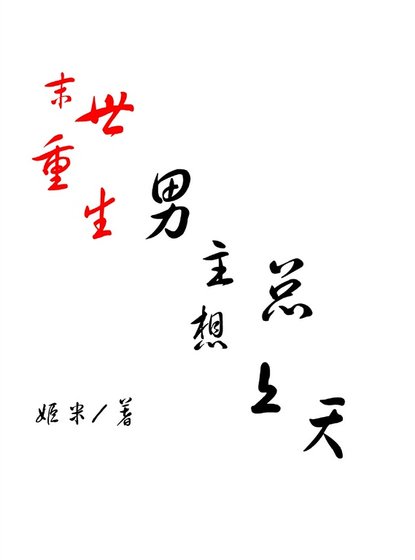 末世
重生
男主总想上天
姬米/著